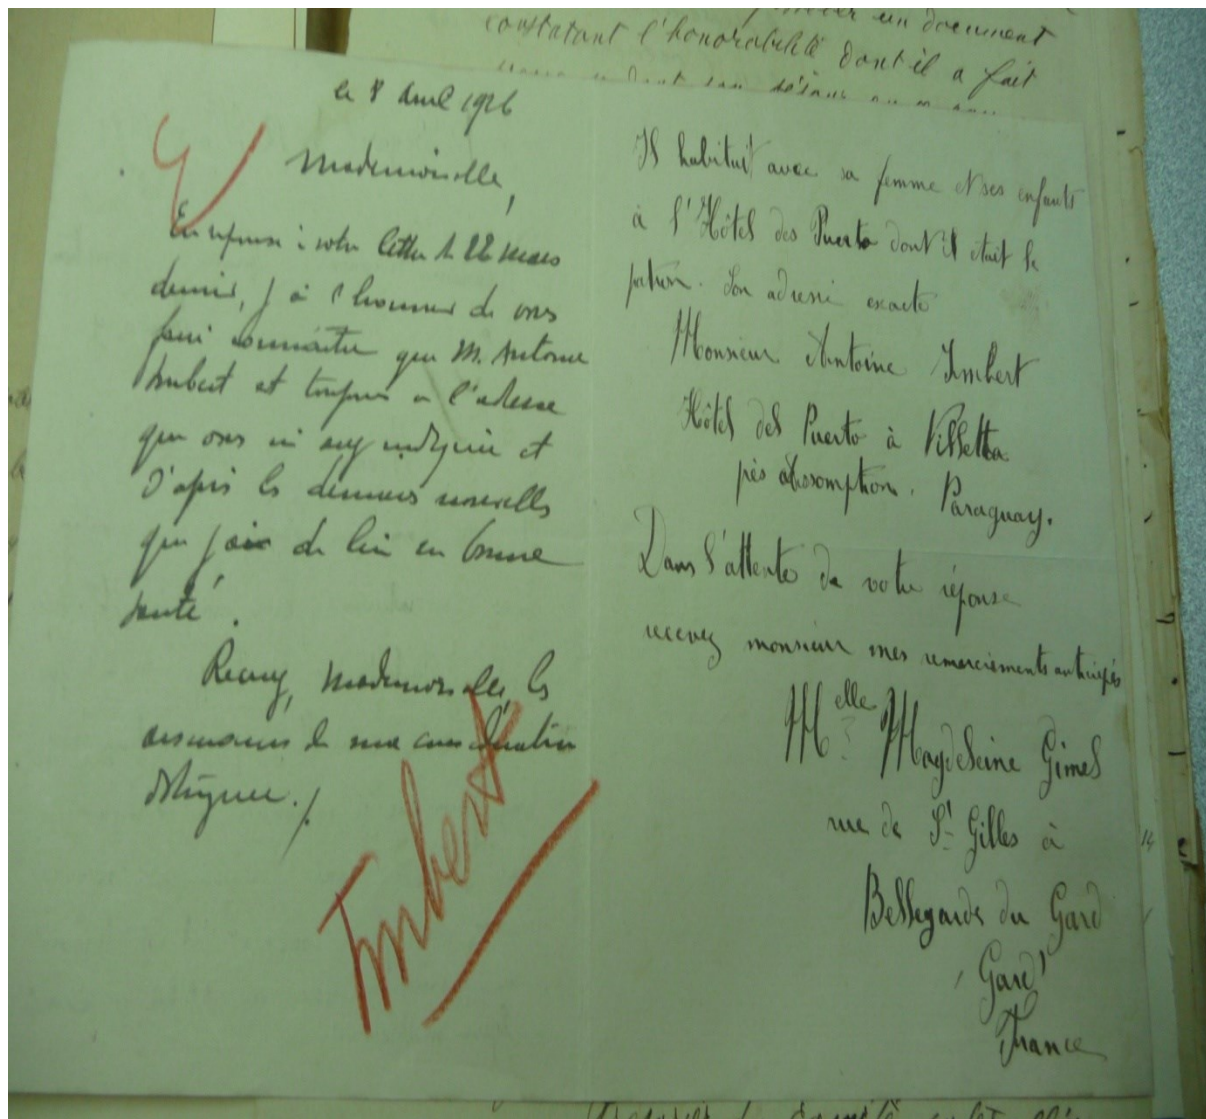 constatant l'honorabilité dont il a fait
le 8 Avril 1926
Mademoiselle,
En réponse à votre lettre du 22 mars
dernier, j'ai l'honneur de vous
faire connaître que M. Antoine
Imbert est toujours à l'adresse
que vous m'avez indiquée et
d'après les dernières nouvelles
que j'ai de lui en bonne
santé.
Recevez, Mademoiselle, les
assurances de ma considération
distinguée./.
Imbert
Il habitait avec sa femme et ses enfants
à l'Hôtel des Puerto dont il était le
patron. Son adresse exacte
Monsieur Antoine Imbert
Hôtel del Puerto à Villetta
près Assomption. Paraguay.
Dans l'attente de votre réponse
recevez monsieur mes remerciements anticipés
Melle Magdeleine Gimel
rue de St Gilles à
Bellegarde du Gard
Gard
France